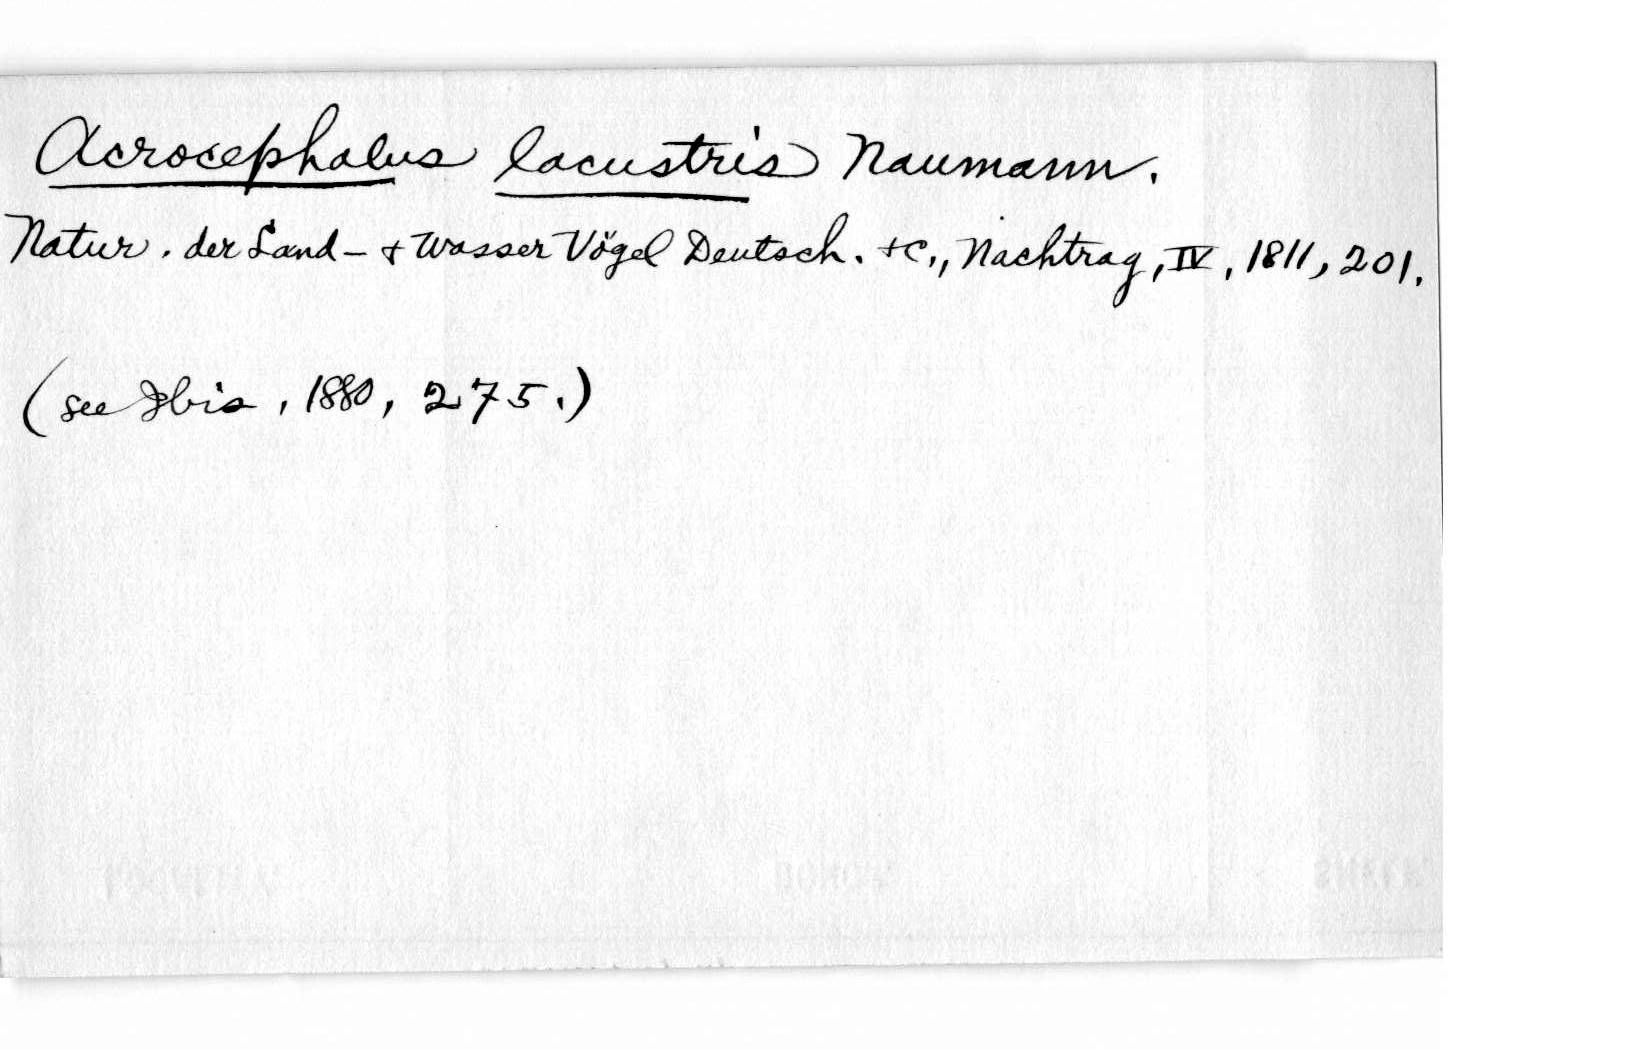 Acrocephalus lacustris Naumann.
Natur. der Land- & Wasser Vögel Deutsch. &c., Nachtrag, IV, 1811, 201.
(see Ibis, 1880, 275.)